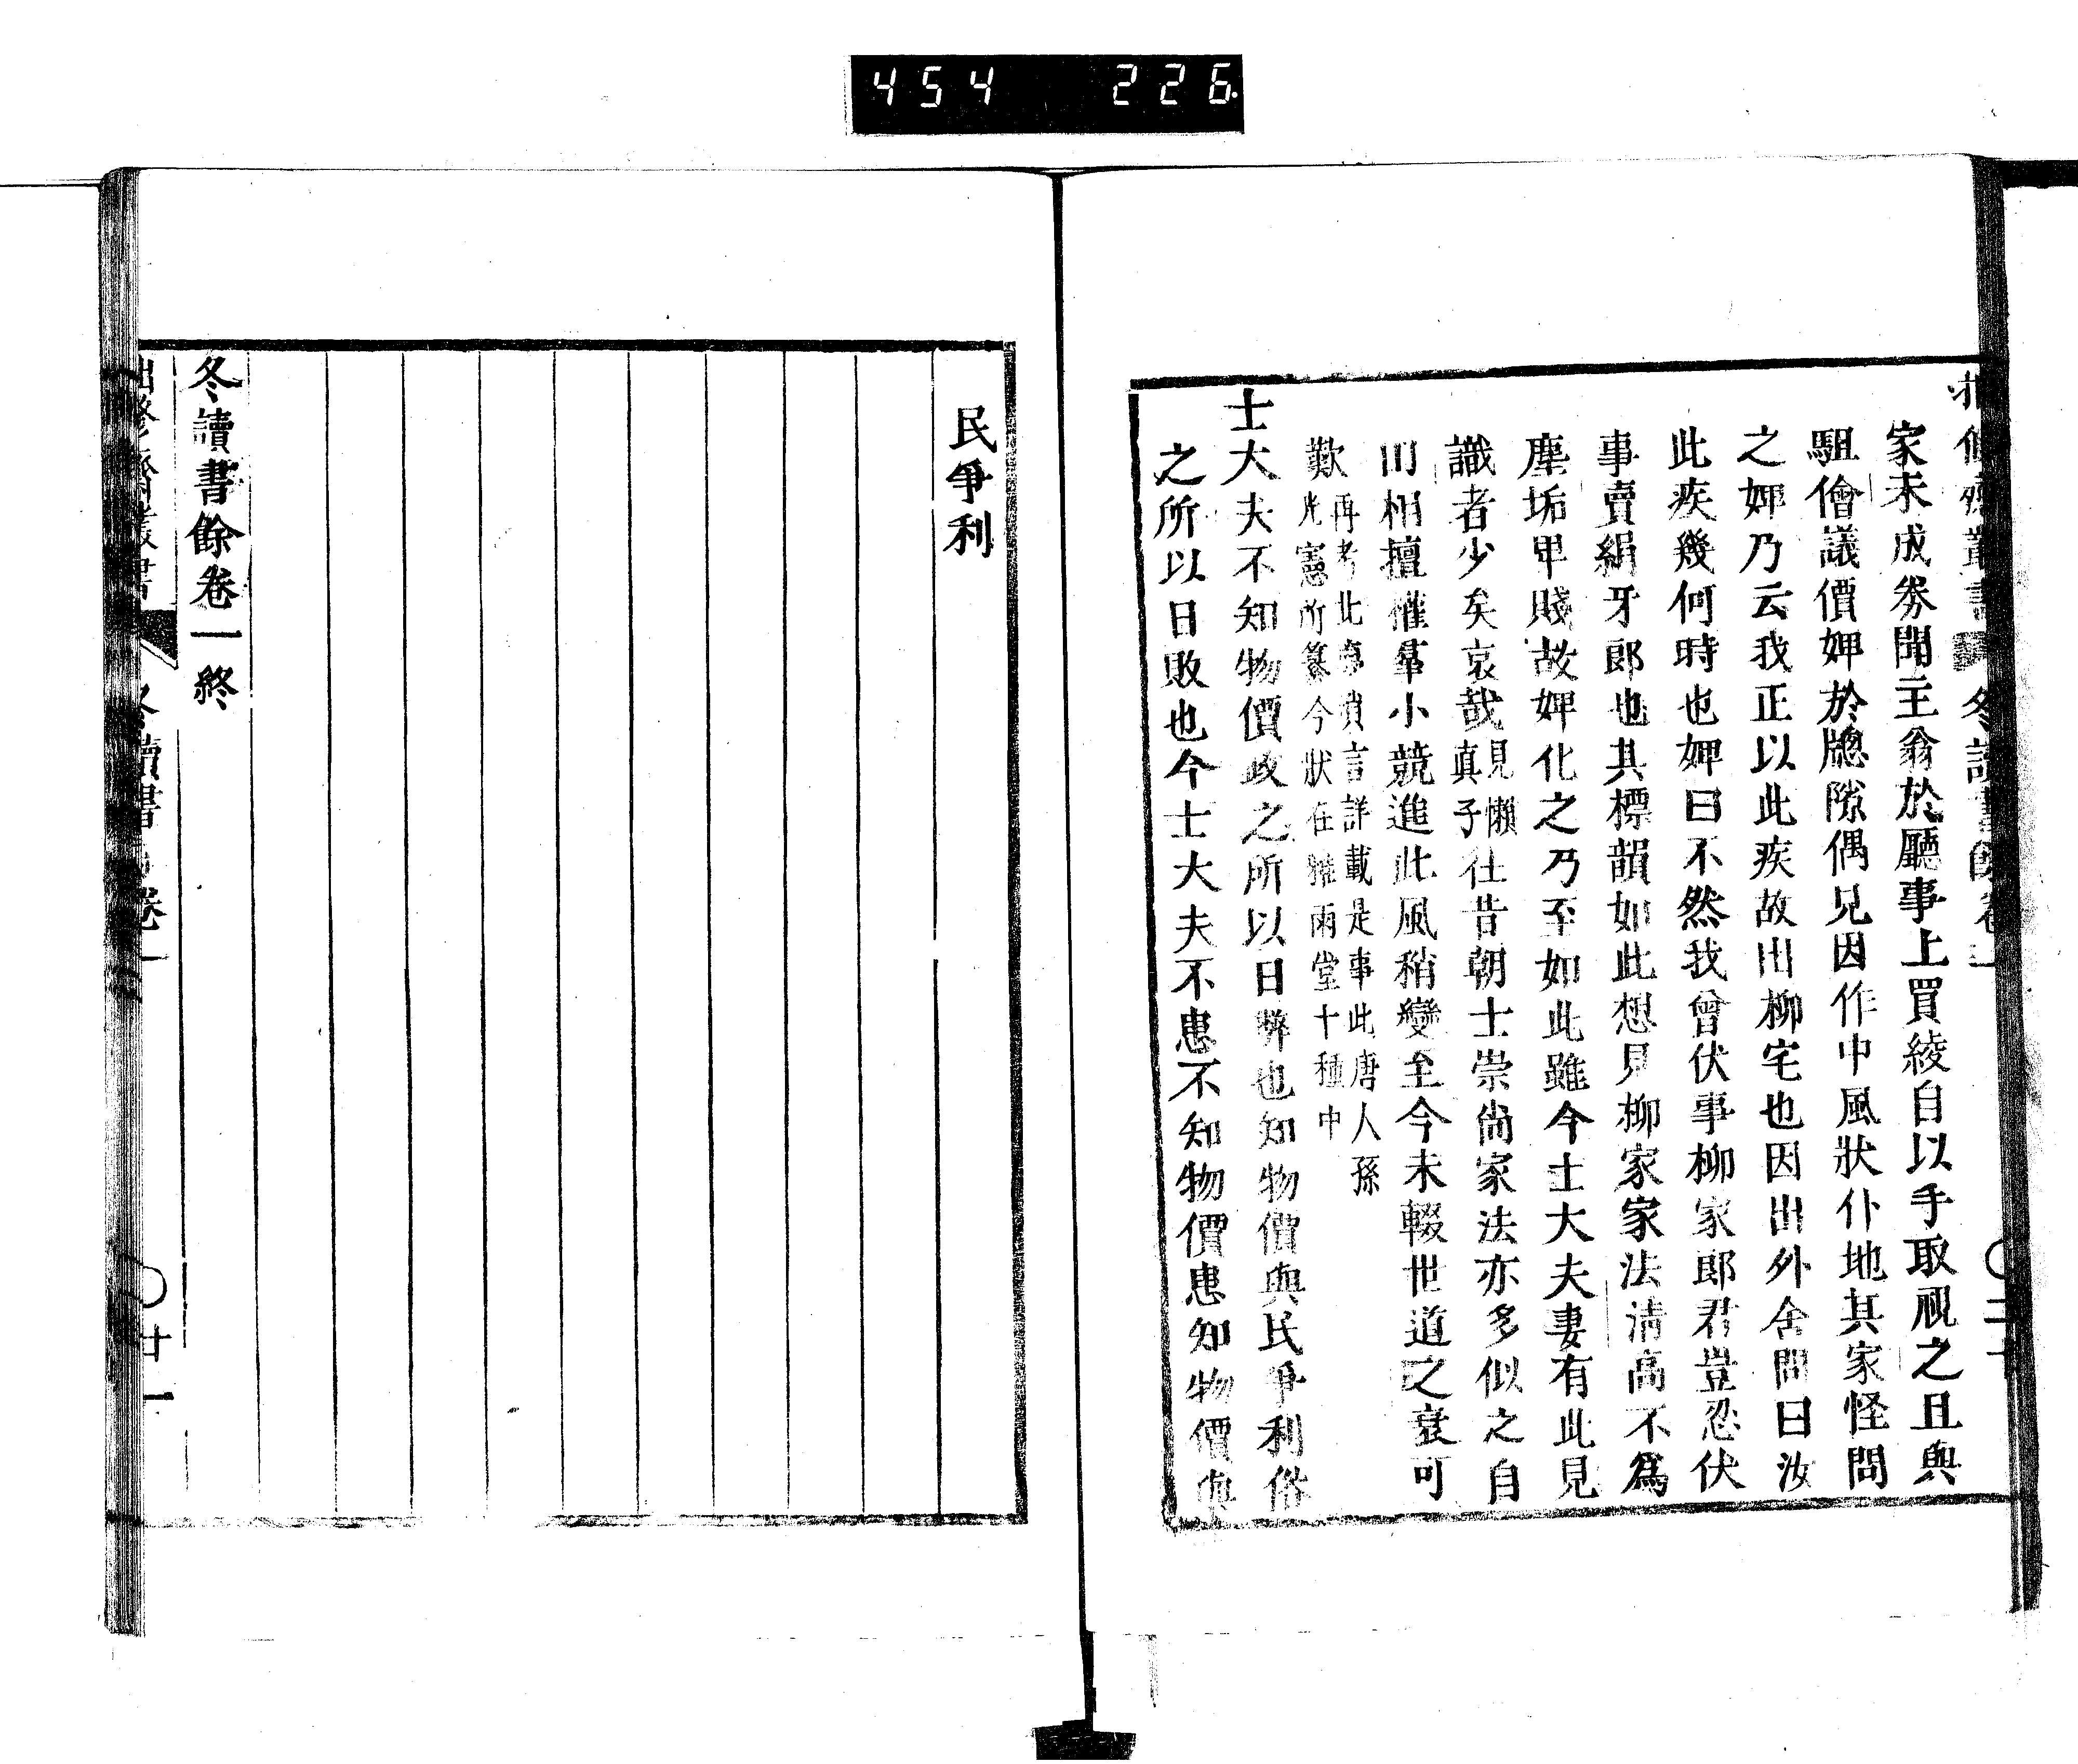 454 226
冬讀書餘卷一
家未成券聞主翁於廳事上買綾自以手取視之且與
駔儈議價婢於牕隙偶見因作中風狀仆地其家怪問
之婢乃云我正以此疾故出柳宅也因出外舍問曰汝
此疾幾何時也婢曰不然我曾伏事柳家郎君豈忍伏
事賣絹牙郎也其標韻如此想見柳家家法清高不為
塵垢卑賤故婢化之乃至如此雖今士大夫妻有此見
識者少矣哀哉見懶真子往昔朝士崇尚家法亦多似之自
川相擅權羣小競進此風稍變至今未輟世道之衰可
歎再考此亭瑣言詳載是事此唐人孫
光憲所纂今狀在雅雨堂十種中
士大夫不知物價政之所以日弊也知物價與民爭利俗
之所以日敗也今士大夫不患不知物價患知物價與
民爭利
冬讀書餘卷一終
冬讀書餘卷一
廿一